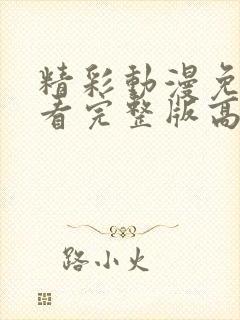 精彩動漫免
看完整版高
路小火